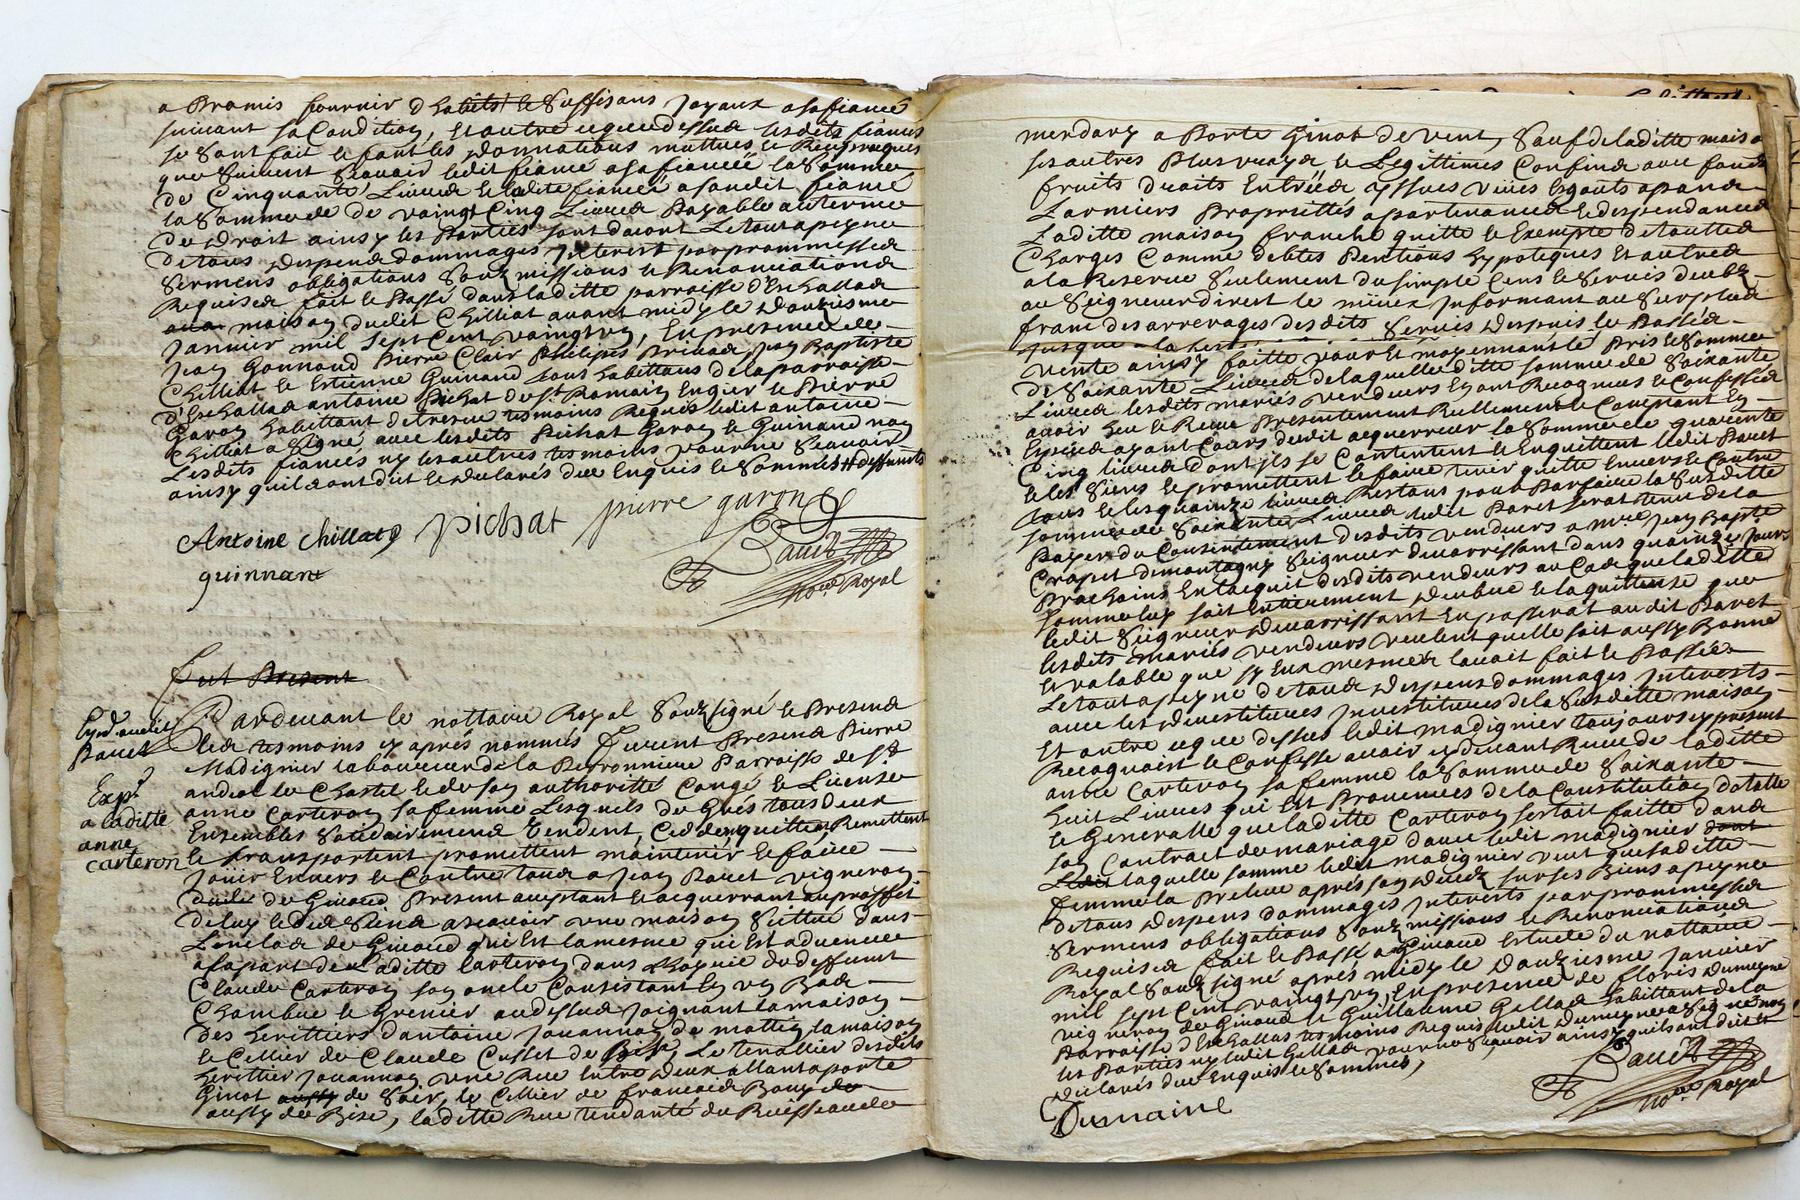 a Promis fournir d'habits & Suffisans joyaux a sa fiancé
suivant sa Condition, Et outre ce que dessus lesdits fiancés
se Sont fait & font les donnations mutues & Reciproques
que suivent Scavoir ledit fiancé a sa fiancée la Somme
de Cinquante Livres & ladite fiancée a sondit fiancé
la Somme de vaingt Cinq Livres Payable au terme
de Droit ainsy les Parties sont dacort Le tout a peyne
de tous despens dommages Interest par prommesses
Sermens obligations Soubmissions & Renonciations
Requises fait & Passé dans laditte parroisse d'Eschallas
maison dudit Chilliat avant midy le Douzisme
Janvier mil sept Cent vaingt En presence de
Jean Gonnaud Pierre Clair Philipes Jean Baptiste
Chilliat & Estienne Guinand tous habittans de la parroisse
d'Eschallas antoine Pichat de St Romain En gier & Pierre
Garon habittant de tresve tesmoins Requis ledit antoine
Chilliat a Signé avec lesdits Pichat Garon & Guinand non
Lesdits fiancés ny les autres tesmoins pour ne Scavoir
ainsy quil ont dit & declarés due Enquis & Sommés
Antoine chilliat pichat pierre garon
guinnant
nore Royal
fut Present
Pardevant le nottaire Royal Soubsigné & Presens
les tesmoins cy aprés nommés furent Presens Pierre
Madignier laboureur de la Peyronniere Parroisse de St
andeol le Chastel & de son authorité Congé & License
anne Carteron sa femme Lesquels de Grés tous deux
Ensembles Solidairement Vendent, Ceddent quittent Remettent
& transportent promettent maintenir & faire
Jouir Envers & Contre tous a Jean Bavet vigneron
de Givord Present aceptant & acquerrant au proffit
de luy & des Siens ascavoir une maison Scittué dans
Lenclos de Givord qui Est la mesme qui Est advenue
a la part de laditte Carteron dans L'hoyrie du deffunt
Claude Carteron son oncle Consistant En un Bas
Chambre & Grenier au dessus joignant la maison
des herittiers d'antoine Jouannon de mattin la maison
& Cellier de Claude Cusset de Bise, Le tenallier desdits
herittier Jouannon une Rue Entre deux allant a porte
Ginot de Soir, le Cellier de francois
aussy de Bise, laditte Rue tendante du Ruisseau de
Expd audit
Bavet
Expé
a laditte
anne
carteron
merdary a Porte Ginot de vent, Sauf de laditte maison
ses autres Plus vrays & Legittimes Confins avec fonds
fruits droits Entrées yssues vuies Esgouts apands
Larmiers Proprietés apartenances & despendances
Laditte maison franche quitte & Exempte de touttes
Charges Comme debtes Pentions hypoteques Et autres
a la Reserve Seulement du simple Cens & Servis deubz
au Seigneur direct le mieux Informant au Surplus
franc des arrerages desdits Servis despuis le Passés
Jusque a
vente ainsy faitte pour Et moyennant le Pris & Somme
de Soixante Livres de laquelle ditte somme de Soixante
Livres lesdits mariés vendeurs Ont Recognus & Confessés
avoir heu & Receu Presentement Reellement & Comptant En
Especes ayant Cours dudit acquerreur la Somme de quarente
Cinq livres dont ils se Contentent & Enquittent ledit Bavet
& les Siens & promettent le faire tenir quitte Envers & Contre
tous & les quinze livres Restans pour Parfaire la Susditte
somme de Soixante Livres ledit Bavet serat tenu de la
Payer du Consentement desdits vendeurs a mre Jean Bapte
Crapet de montagny Seigneur de marrissant dans quainze Jours
Prochains En lacquit desdits vendeurs au Cas que laditte
somme luy soit Entierement deubue & la quittense que
ledit Seigneur de marrissant En passerat audit Bavet
lesdits mariés vendeurs veulent quelle soit aussy Bonne
& valable que sy Eux mesmes lavoit fait & Passées
Le tout a peyne de tous despens dommages Interets
avec les devestitures Investitures de la Susditte maison
Et outre ce que dessus ledit madignier toujours present
Recognoist & Confesse avoir cy devant Receu de laditte
anne Carteron sa femme la Somme de Soixante
huit Livres qui Est Provenues de la Constitution dotalle
& Generalle que laditte Carteron sestoit faitte dans
son Contract de mariage davec ledit madignier dont
Ledit laquelle somme ledit madignier veut que saditte
femme la Preleve aprés son deces sur ses Biens a peyne
de tous despens dommages Interets par prommesses
Sermens obligations Soubmissions & Renonciations
Requises fait & Passé a Givord Estude du nottaire
Royal Soubsigné aprés midy le Douzisme Janvier
mil sept Cent vaingt En presence de floris Dumeyne
vigneron de Givord & Guillaume Gellas habittant de la
Parroisse d'Eschallas tesmoins Requis ledit Dumeyne a Signé non
les Parties ny ledit Gellas pour ne Scavoir ainsy quils ont dit &
declarés due Enquis & Sommés,
Dumaine
nore Royal